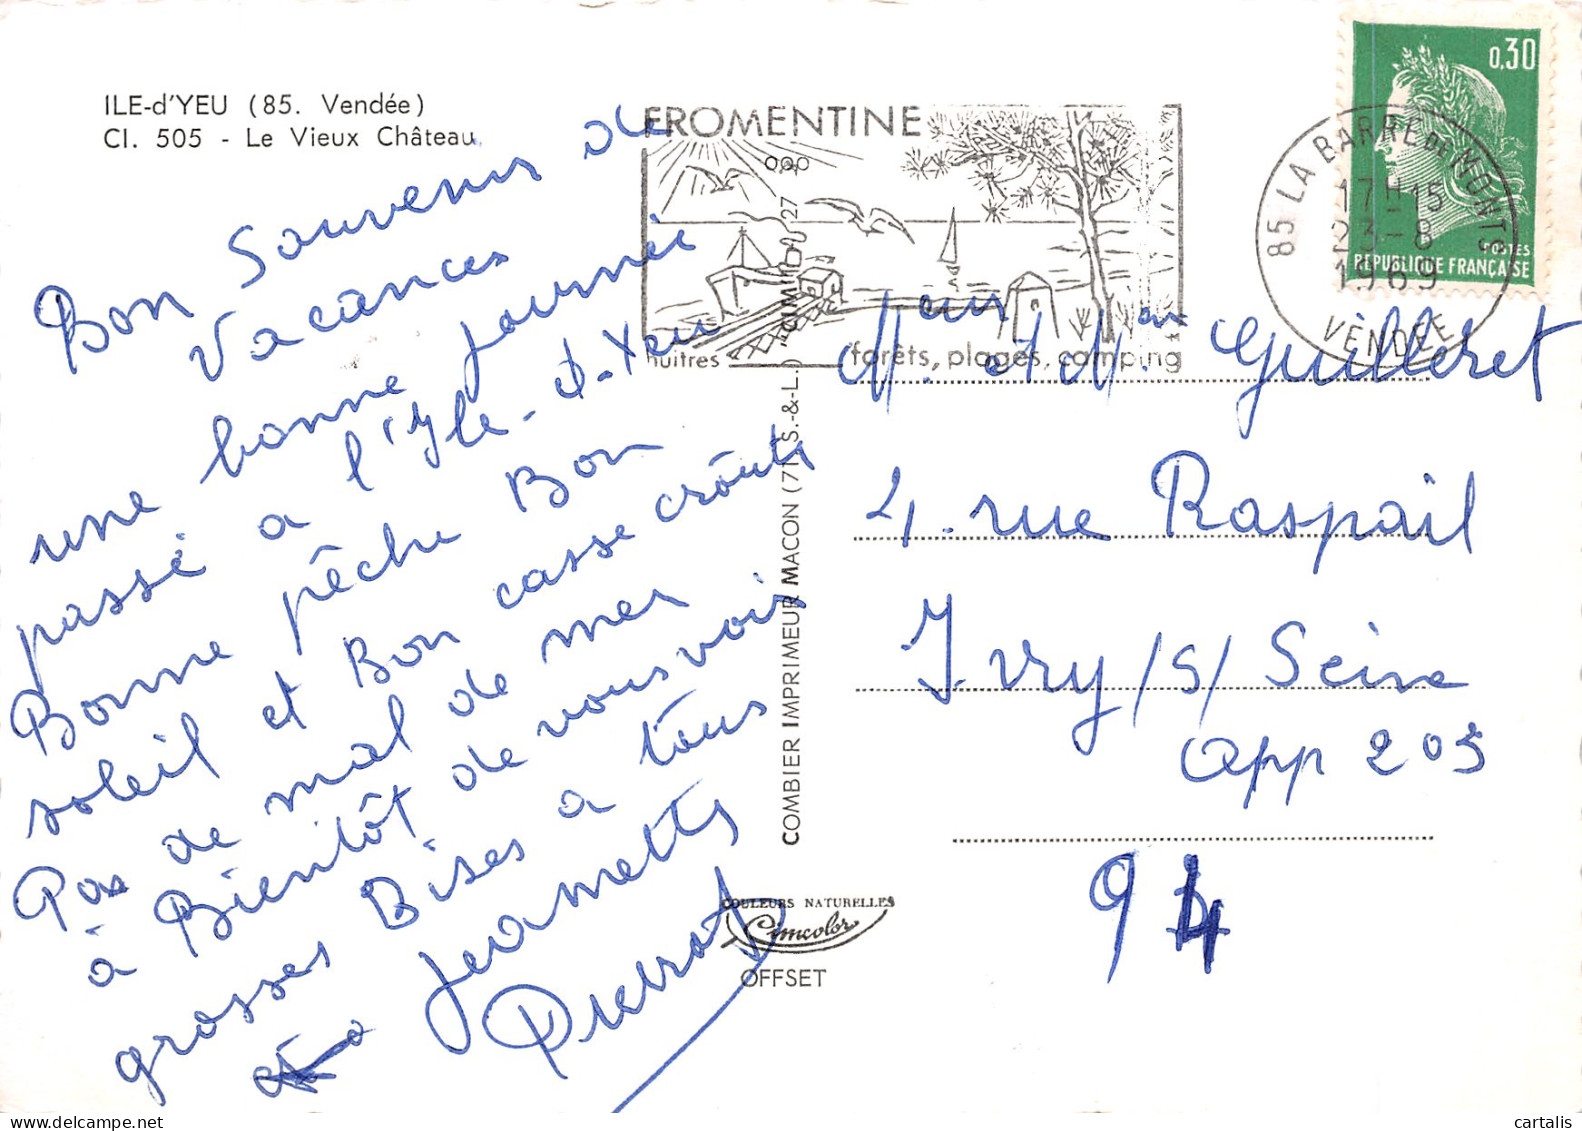 ILE-d'YEU (85. Vendée)
CI. 505 - Le Vieux Château
Bon Souvenir de
Vacances
une bonne journée
passé a l'Yle-d-Yeu
Bonne pêche Bon
soleil et Bon casse croûte
Pas de mal de mer
à Bientôt de vous voir
grosses Bises a tous
Jeannette
Pierrot
COMBIER IMPRIMEUR MACON (71 S.-&-L.)
COULEURS NATURELLES
Cimcolor
OFFSET
FROMENTINE
huitres
forêts, plages, camping
85 LA BARRE DE MONTS
17H15
23-8
1969
VENDEE
0,30
POSTES
REPUBLIQUE FRANÇAISE
Meur et Me Guilleret
4. rue Raspail
Ivry /S/ Seine
app 205
94
cartalis